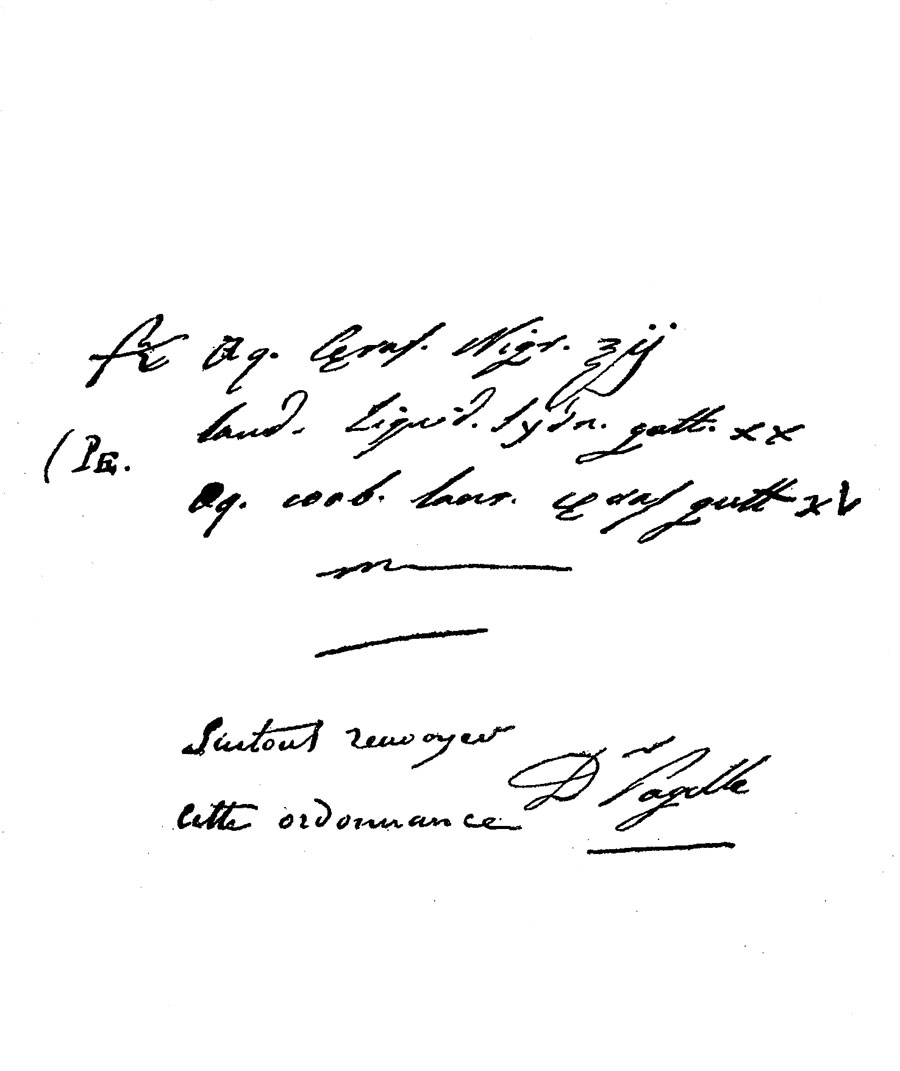 Aq. Ceras. Nigr. ʒij
(Pr. laud. Liquid. Sydn. gutt. xx
Aq. coob. laur. ceras gutt xv
Surtout renvoyer
cette ordonnance Dr Pagello